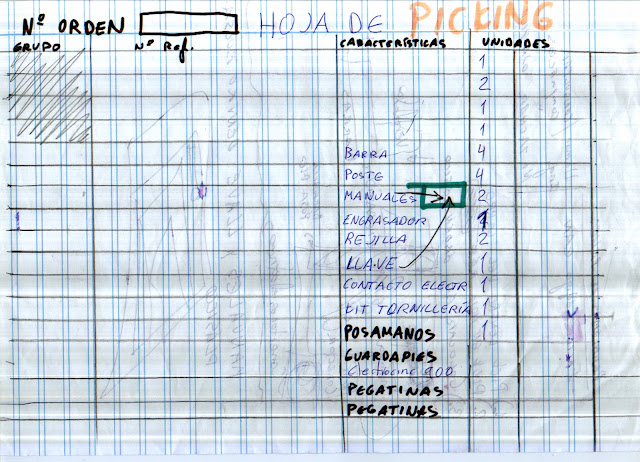 Nº ORDEN HOJA DE PICKING
GRUPO Nº Ref. CARACTERÍSTICAS UNIDADES
1
2
1
1
BARRA 4
POSTE 4
MANUALES 2
ENGRASADOR 1
REJILLA 2
LLAVE 1
CONTACTO ELECTR 1
KIT TORNILLERÍA 1
POSAMANOS 1
GUARDAPIES
900
PEGATINAS
PEGATINAS